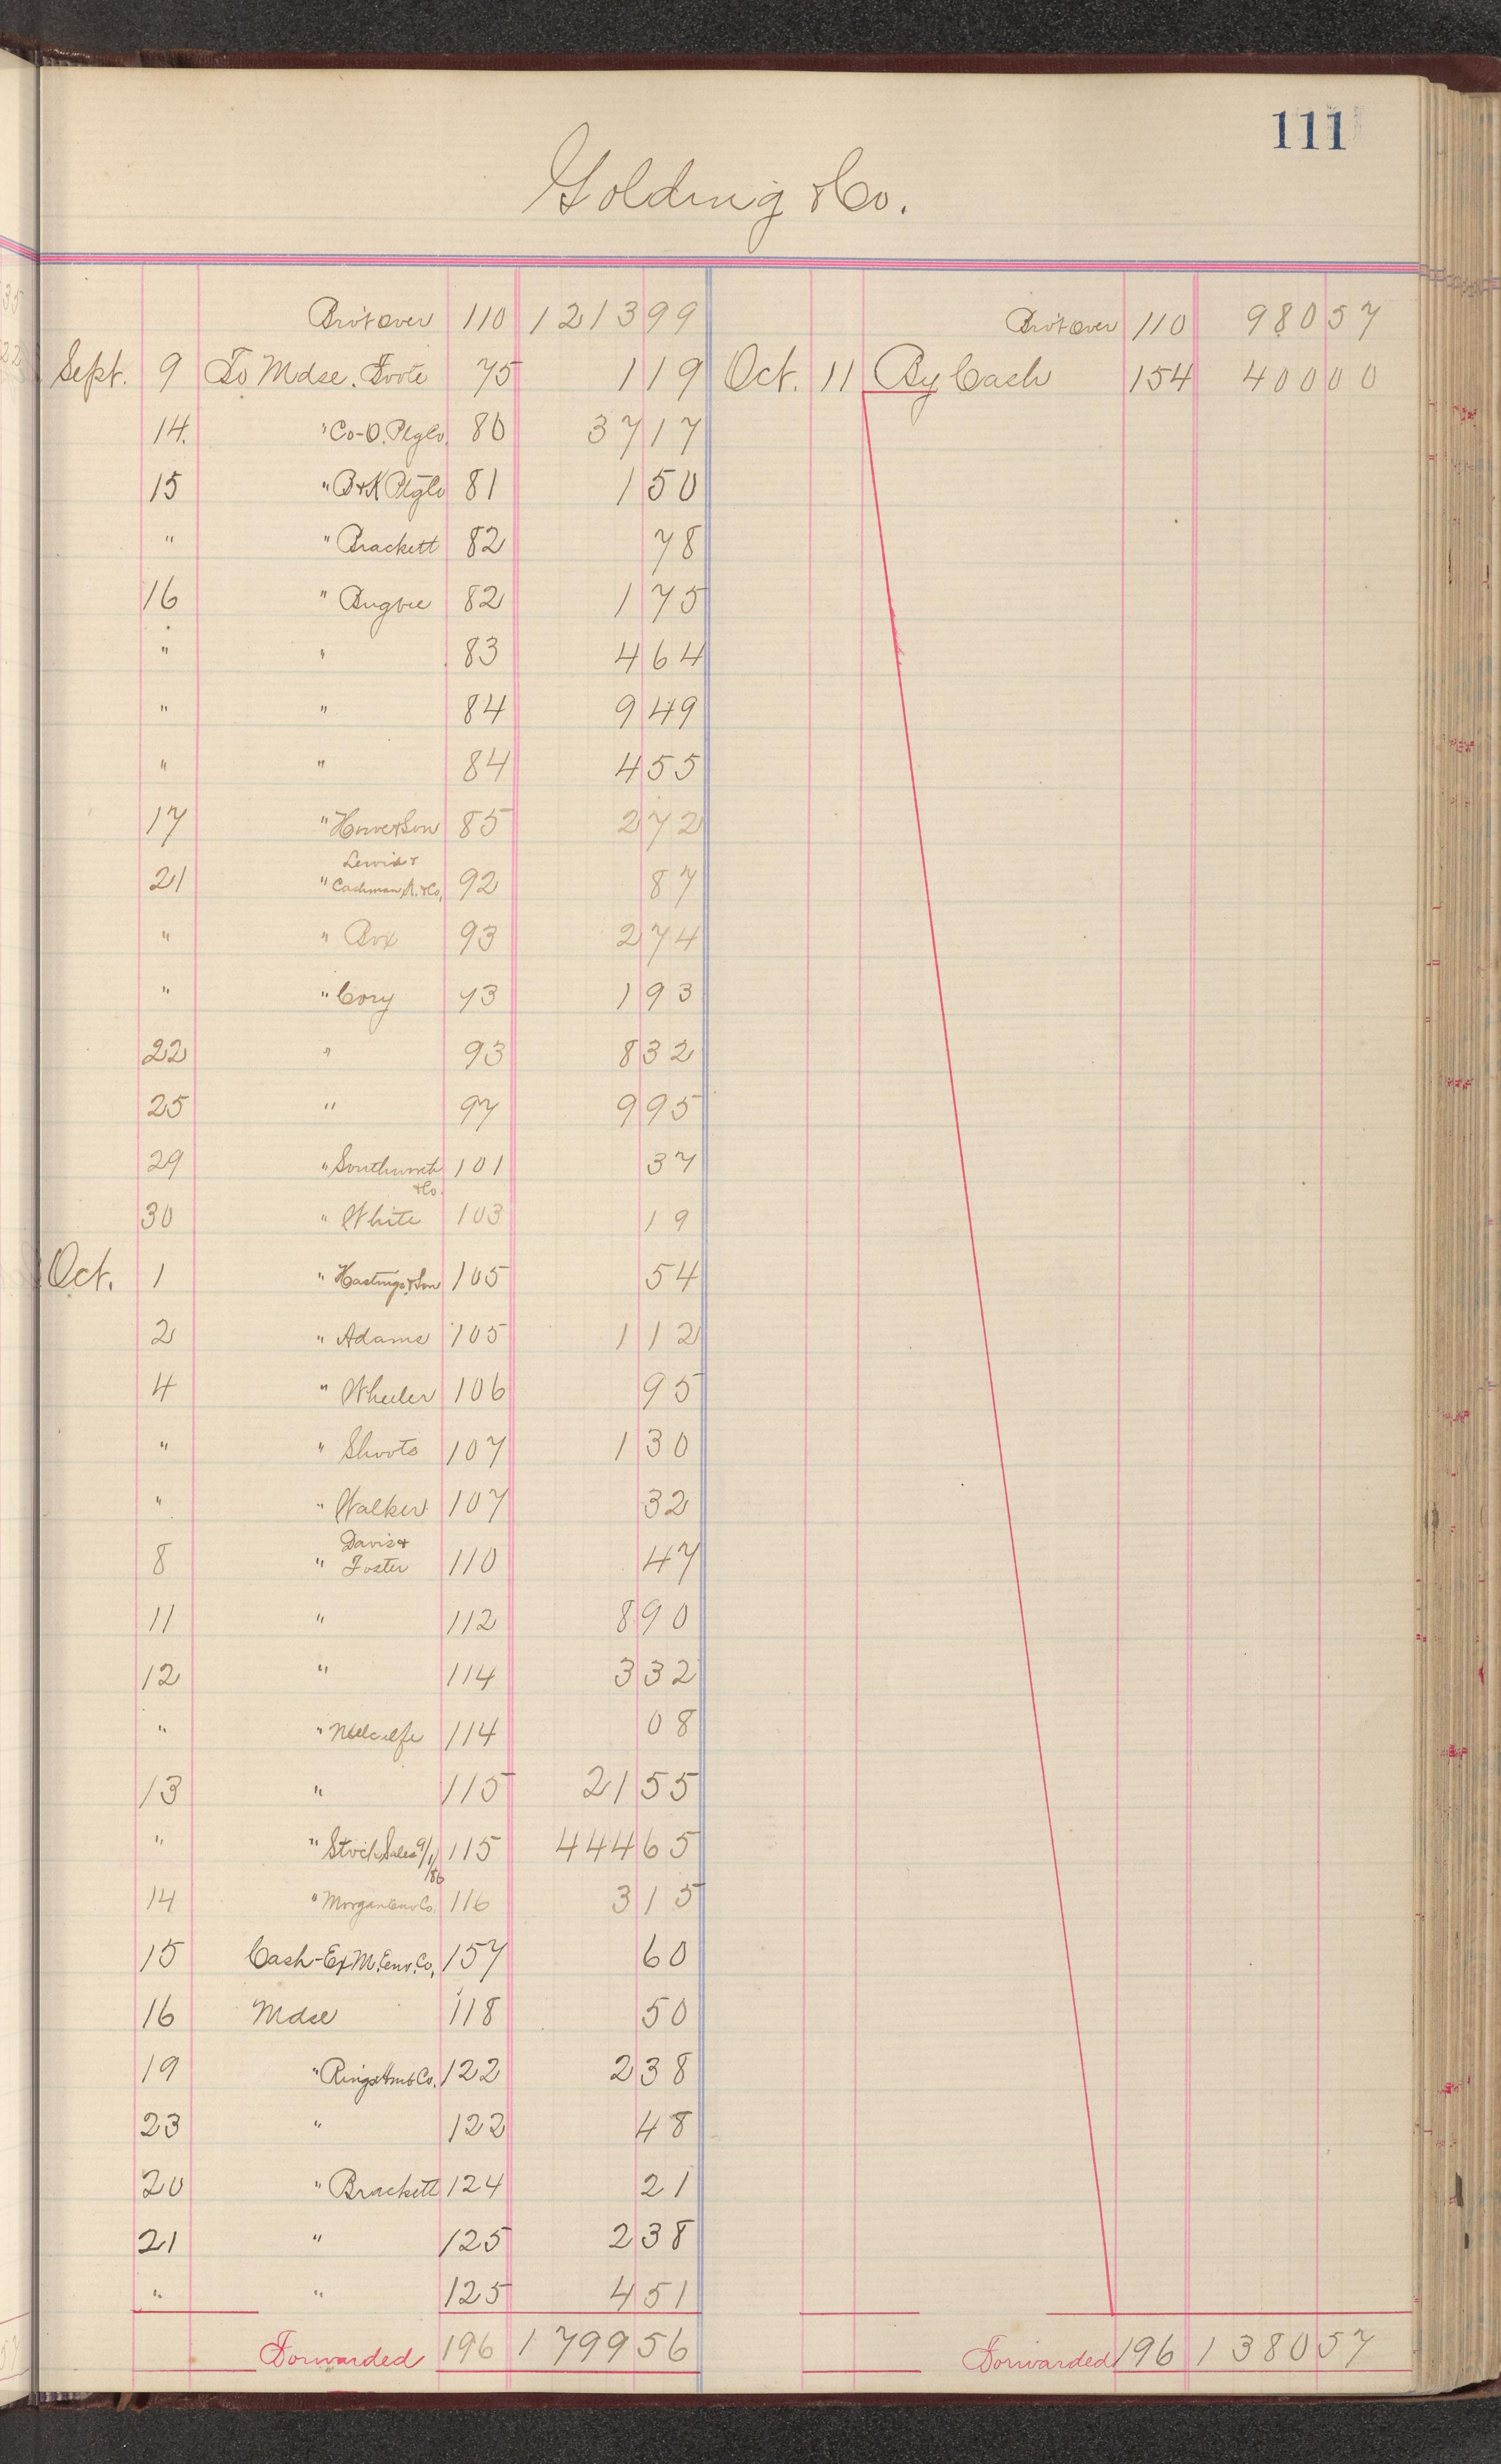 111
Golding & Co.
Bro't over 110 1213 99 Bro't over 110 980 57
Sept. 9 To Mdse. Foote 75 1 19 Oct. 11 By Cash 154 400 00
14. " Co-O. Ptg Co. 80 37 17
15 " B & K Ptg Co 81 1 50
" " Brackett 82 78
16 " Bugbee 82 1 75
" " 83 4 64
" " 84 9 49
" " 84 4 55
17 " Howe & Son 85 2 72
Lewis &
21 " Cashman, A. & Co. 92 87
" " Box 93 2 74
" " Cory 93 1 93
22 " 93 8 32
25 " 97 9 95
29 " Southworth 101 37
& Co.
30 " White 103 19
Oct. 1 " Hastings & Son 105 54
2 " Adams 105 1 12
4 " Wheeler 106 95
" " Shoots 107 1 30
" " Walker 107 32
Davis &
8 " Foster 110 47
11 " 112 8 90
12 " 114 3 32
" " Metcalfe 114 08
13 " 115 21 55
" " Stock Sales 9/1/86 115 444 65
14 " Morgan Env Co. 116 3 15
15 Cash-Ex M. Env. Co. 157 60
16 Mdse 118 50
19 " Rings 122 2 38
23 " 122 48
20 " Brackett 124 21
21 " 125 2 38
" " 125 4 51
Forwarded 196 1799 56 Forwarded 196 1380 57